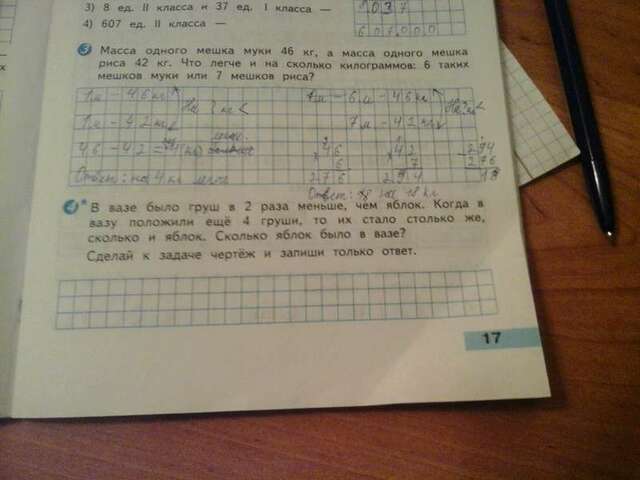 3) 8 ед. II класса и 37 ед. I класса —
8037
4) 607 ед. II класса —
607000
3 Масса одного мешка муки 46 кг, а масса одного мешка
риса 42 кг. Что легче и на сколько килограммов: 6 таких
мешков муки или 7 мешков риса?
1м – 46 кг
На ? кг <
1м – 42 кг
46 – 42 = 4 (кг)
Ответ: на 4 кг легче
6м – 46 кг
7м – 42 кг
На ? кг <
× 46 × 42 – 294
6 7 276
276 294 18
Ответ: на 18 кг.
4* В вазе было груш в 2 раза меньше, чем яблок. Когда в
вазу положили ещё 4 груши, то их стало столько же,
сколько и яблок. Сколько яблок было в вазе?
Сделай к задаче чертёж и запиши только ответ.
17